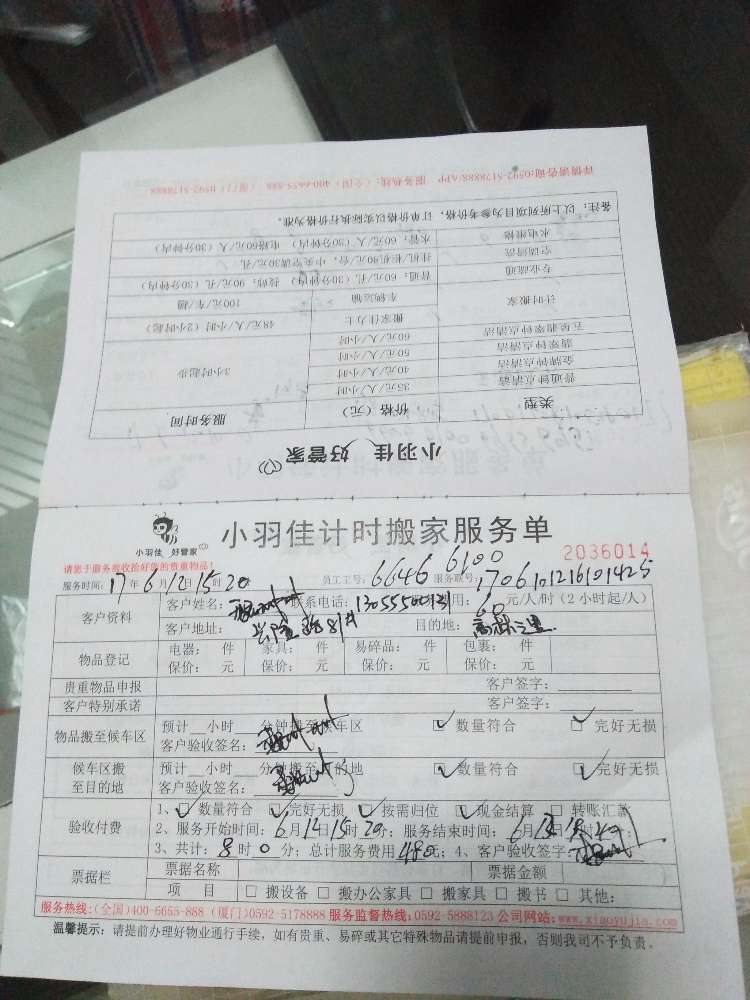 详情请咨询:0592-5178888/APP 服务热线:(全国)400-6655-888 (厦门)0592-5178888
备注:以上所列项目为参考价格,订单价格以实际执行价格为准。
水电维修 水管:60元/人(30分钟内) 电路60元/人(30分钟内)
空调清洗 挂机/柜机80元/台,中央空调30元/孔
专业疏通 普通:60元/孔(30分钟内) 技师:90元/孔(30分钟内)
计时搬家 车辆运输 100元/车/趟
搬家佳力士 48元/人/小时(2小时起)
五星翡翠钟点清洁 60元/人/小时
翡翠钟点清洁 50元/人/小时
金牌钟点清洁 40元/人/小时 3小时起步
普通钟点清洁 35元/人/小时
类型 价格(元) 服务时间
小羽佳 好管家
小羽佳 好管家
小羽佳计时搬家服务单
2036014
请您于服务前收拾好您的贵重物品!
服务时间:17年6月12日15时20 员工工号:6646 6100 服务联号:1706101216101425
客户资料 客户姓名: 联系电话:13055500131 费用:60元/人/时(2小时起/人)
客户地址: 目的地:高林三里
物品登记 电器: 件 家具: 件 易碎品: 件 包裹: 件
保价: 元 保价: 元 保价: 元 保价: 元
贵重物品申报 客户签字:
客户特别承诺 客户签字:
物品搬至候车区 预计__小时__分钟搬至候车区 ☑ 数量符合 ☑ 完好无损
客户验收签名:
候车区搬至目的地 预计__小时__分钟搬至目的地 ☑ 数量符合 ☑ 完好无损
客户验收签名:
验收付费 1、☑ 数量符合 ☑ 完好无损 ☑ 按需归位 ☑ 现金结算 □ 转账汇款
2、服务开始时间:6月14日15时20分;服务结束时间:6月
3、共计:8时0分;总计服务费用480元;4、客户验收签字:
票据栏 票据名称 票据金额
项 目 □ 搬设备 □ 搬办公家具 □ 搬家具 □ 搬书 □ 其他:
服务热线:(全国)400-6655-888 (厦门)0592-5178888 服务监督热线:0592-5888123 公司网站:www.xiaoyujia.com
温馨提示:请提前办理好物业通行手续,如有贵重、易碎或其它特殊物品请提前申报,否则我司不予负责。